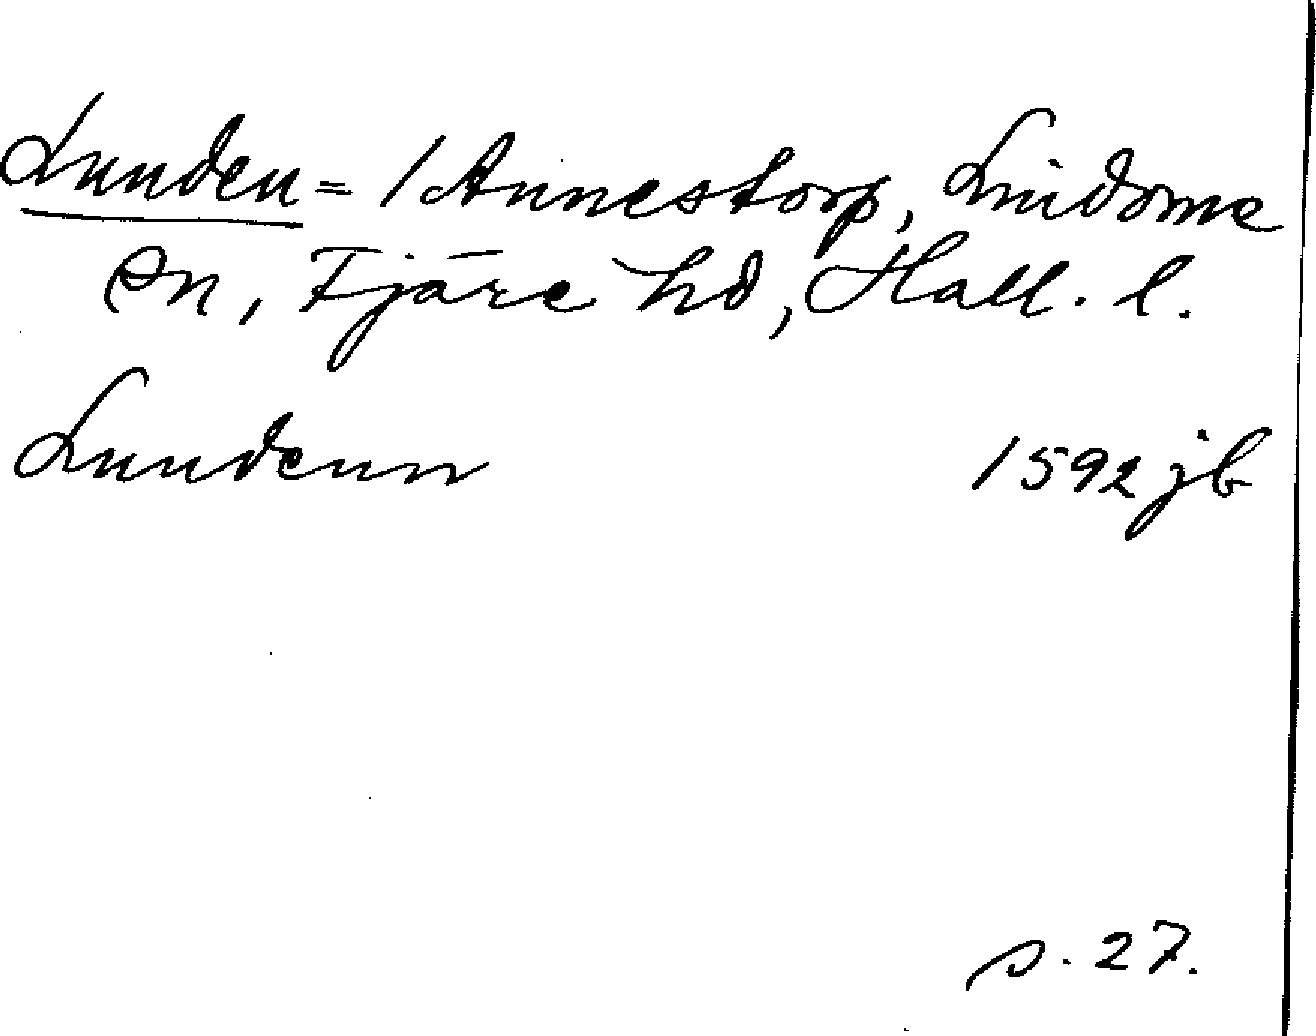 Lunden = 1 Annestorp, Lindome
sn, Fjäre hd, Hall. l.
Lundenn 1592 jb
s. 27.